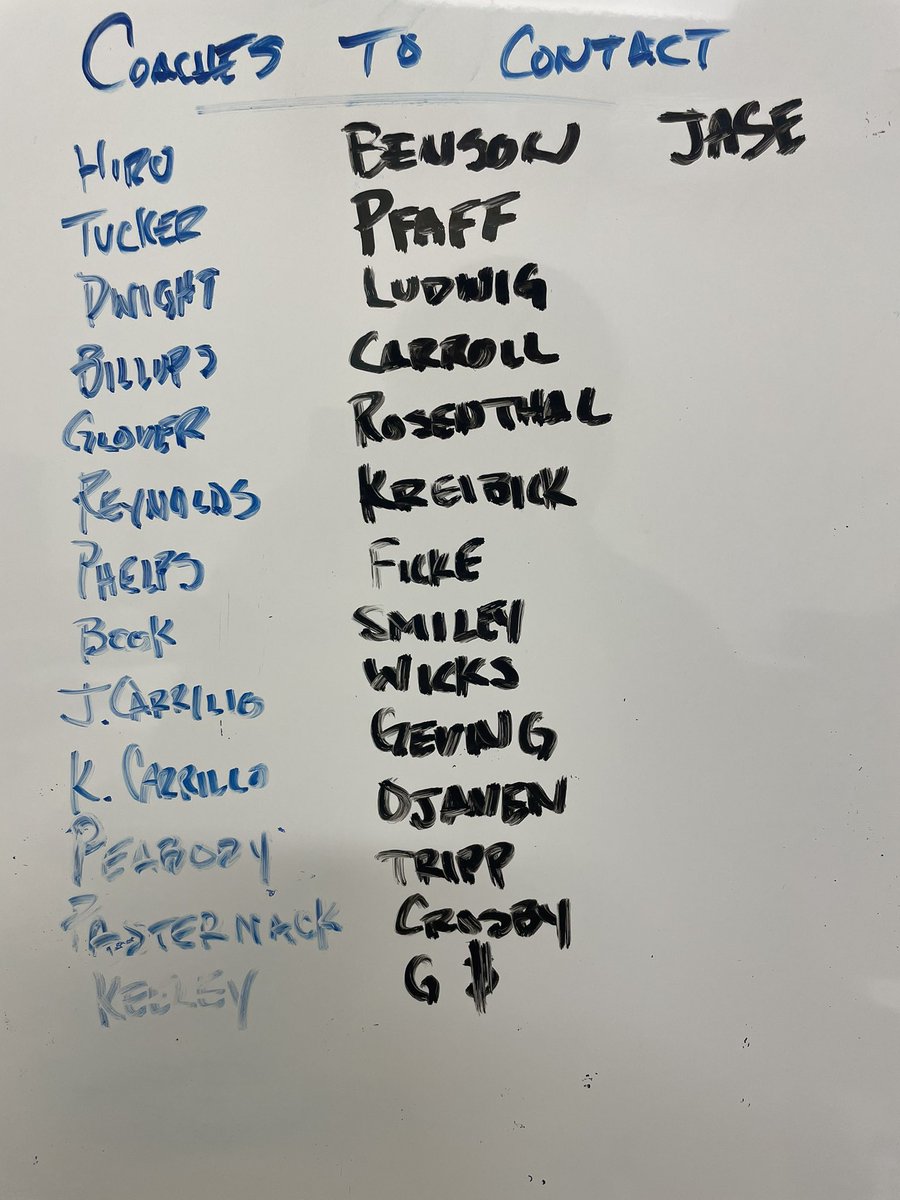 COACHES TO CONTACT
HIRO
TUCKER
DWIGHT
BILLUPS
GLOVER
REYNOLDS
PHELPS
BOOK
J. CARRILLO
K. CARRILLO
PEABODY
PASTERNACK
KELLEY
BENSON
PFAFF
LUDWIG
CARROLL
ROSENTHAL
KREIBICK
FICKE
SMILEY
WICKS
GEVING
DJAVIEN
TRIPP
CROSBY
G $
JASE